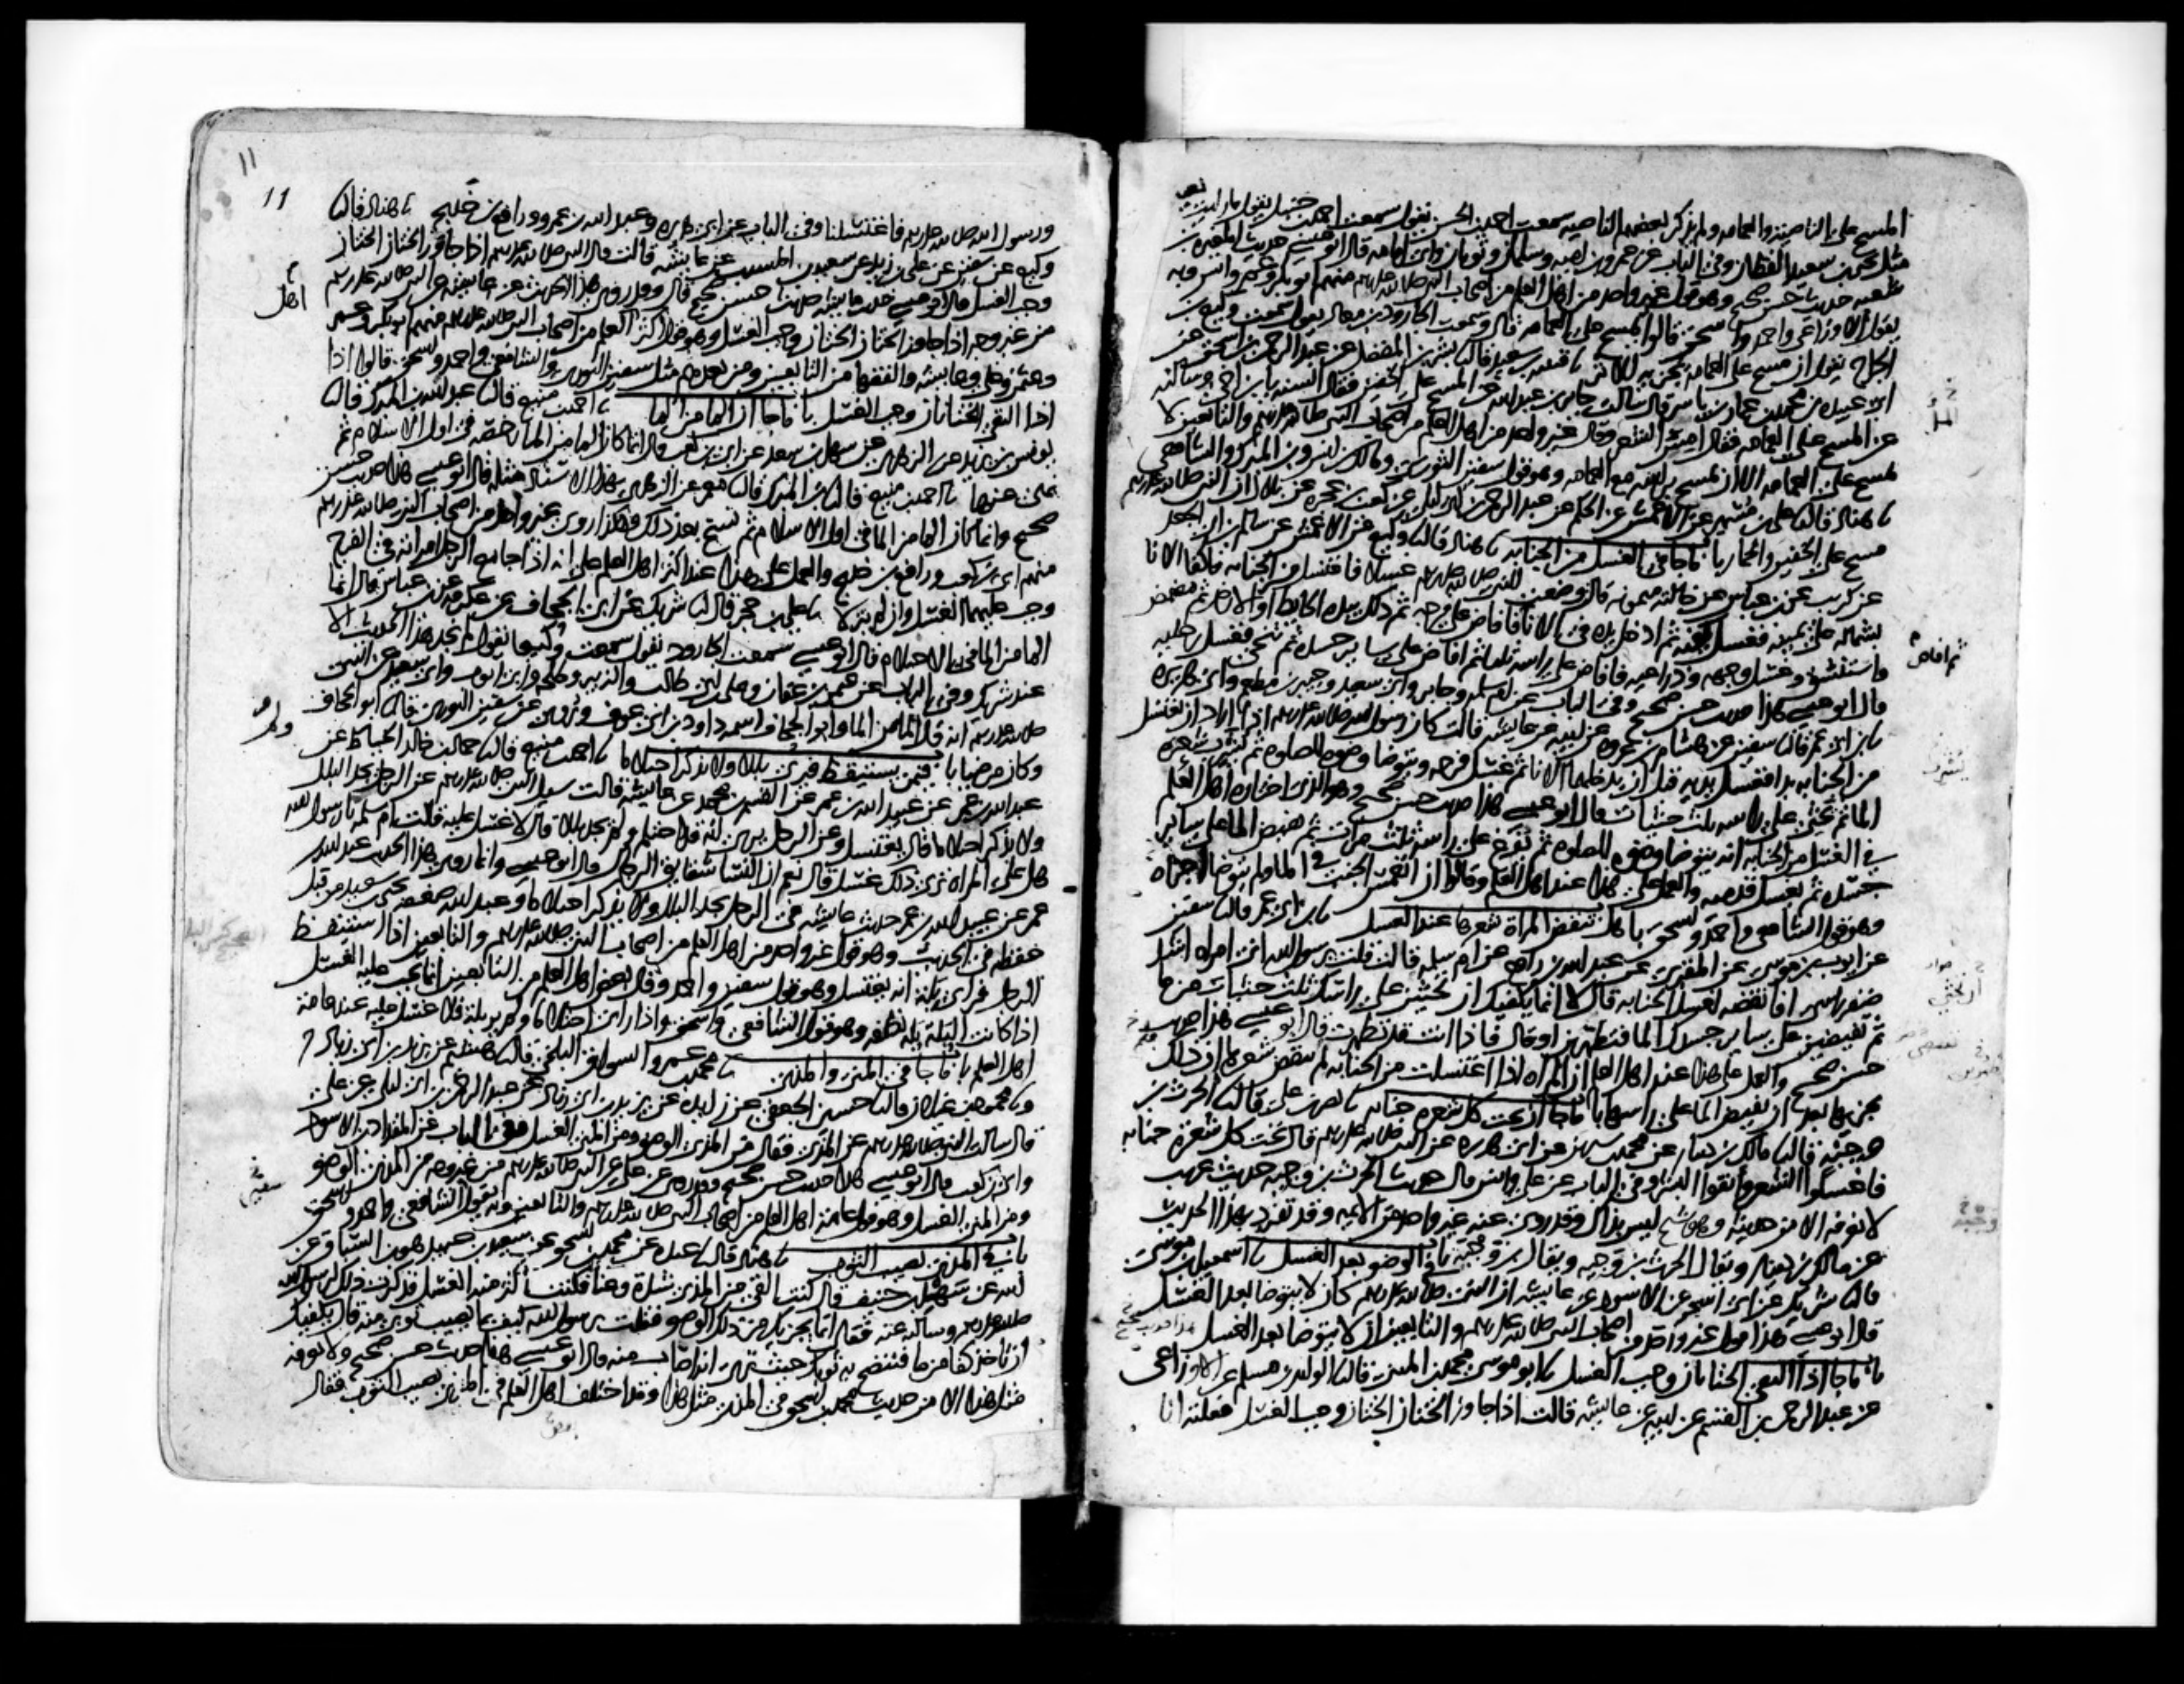 المسح على الناصيه والعمامه ولم يذكر بعضهم الناصيه سمعت احمد بن الحسن يقول سمعت احمد بن حنبل يقول ما رايت بعيني
مثل يحيى بن سعيد القطان وفي الباب عن عمرو بن اميه وسلمان وثوبان وابي امامه قال ابو عيسى حديث المغيره بن
شعبه حديث حسن صحيح وهو قول غير واحد من اهل العلم من اصحاب النبي صلى الله عليه وسلم منهم ابو بكر وعمر وانس وبه
يقول الاوزاعي واحمد واسحق قالوا يمسح على العمامه قال وسمعت الجارود بن معاذ يقول سمعت وكيع بن
الجراح يقول ان مسح على العمامه يجزيه للاثر نا قتيبه بن سعيد قال نا بشر بن المفضل عن عبد الرحمن بن اسحق عن
ابي عبيده بن محمد بن عمار بن ياسر قال سالت جابر بن عبد الله عن المسح على الخفين فقال السنه يا ابن اخي وسالته
عن المسح على العمامه فقال امس الشعر وقال غير واحد من اهل العلم من اصحاب النبي صلى الله عليه وسلم والتابعين لا
يمسح على العمامه الا ان يمسح براسه مع العمامه وهو قول سفين الثوري ومالك بن انس وبن المبرك والشافعي
نا هناد قال نا علي بن مسهر عن الاعمش عن الحكم عن عبد الرحمن بن ابي ليلى عن كعب بن عجره عن بلال ان النبي صلى الله عليه وسلم
مسح على الخفين والخمار باب ما جا في الغسل من الجنابه نا هناد قال نا وكيع عن الاعمش عن سالم بن ابي الجعد
عن كريب عن بن عباس عن خالته ميمونه قالت وضعت للنبي صلى الله عليه وسلم غسلا فاغتسل من الجنابه فاكفا الانا
بشماله على يمينه فغسل كفيه ثم ادخل يده في الانا فافاض على فرجه ثم دلك بيده الحايط او الارض ثم مضمض
واستنشق وغسل وجهه وذراعيه فافاض على راسه ثلثا ثم افاض على ساير جسده ثم تنحى فغسل رجليه
قال ابو عيسى هذا حديث حسن صحيح وفي الباب عن ام سلمه وجابر وابي سعيد وجبير بن مطعم وابي هريره
نا بن ابي عمر قال نا سفين عن هشام بن عروه عن ابيه عن عايشه قالت كان رسول الله صلى الله عليه وسلم اذا اراد ان يغتسل
من الجنابه بدا فغسل يديه قبل ان يدخلهما الانا ثم غسل فرجه ويتوضا وضوه للصلوه ثم يشرب شعره
الما ثم يحثي على راسه ثلث حثيات قال ابو عيسى هذا حديث حسن صحيح وهو الذي اختاره اهل العلم
في الغسل من الجنابه انه يتوضا وضوه للصلوه ثم يفرغ على راسه ثلث مرات ثم يفيض الما على ساير
جسده ثم يغسل قدميه والعمل على هذا عند اهل العلم وقالوا ان انغمس الجنب في الما ولم يتوضا اجزاه
وهو قول الشافعي واحمد واسحق باب هل تنقض المراة شعرها عند الغسل نا بن ابي عمر قال نا سفين
عن ايوب بن موسى عن المقبري عن عبد الله بن رافع عن ام سلمه قالت قلت يرسول الله اني امراه اشد
ضفر راسي افانقضه لغسل الجنابه قال لا انما يكفيك ان تحثين على راسك ثلث حثيات من ما
ثم تفيضين على ساير جسدك الما فتطهرين او قال فاذا انت قد تطهرت قال ابو عيسى هذا حديث
حسن صحيح والعمل على هذا عند اهل العلم ان المراه اذا اغتسلت من الجنابه فلم تنقض شعرها ان ذلك
يجزيها بعد ان تفيض الما على راسها باب ما جا ان تحت كل شعره جنابه نا نصر بن علي قال نا الحرث بن
وجيه قال نا مالك بن دينار عن محمد بن سيرين عن ابي هريره عن النبي صلى الله عليه وسلم قال تحت كل شعره جنابه
فاغسلوا الشعر وانقوا البشر وفي الباب عن علي وانس قال حديث الحرث بن وجيه حديث غريب
لا نعرفه الا من حديثه وهو شيخ ليس بذاك وقد روى عنه غير واحد من الايمه وقد تفرد بهذا الحديث
عن مالك بن دينار ويقال الحرث بن وجيه ويقال بن وجبه باب في الوضو بعد الغسل نا اسمعيل بن موسى
قال نا شريك عن ابي اسحق عن الاسود عن عايشه ان النبي صلى الله عليه وسلم كان لا يتوضا بعد الغسل
قال ابو عيسى هذا قول غير واحد من اصحاب النبي صلى الله عليه وسلم والتابعين ان لا يتوضا بعد الغسل
باب ما جا اذا التقى الختانان وجب الغسل نا ابو موسى محمد بن المثنى قال نا الوليد بن مسلم عن الاوزاعي
عن عبد الرحمن بن القسم عن ابيه عن عايشه قالت اذا جاوز الختان الختان وجب الغسل فعلته انا
ثم افاض
11
11
ورسول الله صلى الله عليه وسلم فاغتسلنا وفي الباب عن ابي هريره وعبد الله بن عمرو ورافع بن خديج نا هناد قال نا
وكيع عن سفين عن علي بن زيد عن سعيد بن المسيب عن عايشه قالت قال النبي صلى الله عليه وسلم اذا جاوز الختان الختان
وجب الغسل قال ابو عيسى حديث عايشه حديث حسن صحيح قال وقد روي هذا الحديث عن عايشه عن النبي صلى الله عليه وسلم
من غير وجه اذا جاوز الختان الختان وجب الغسل وهو قول اكثر العلم من اصحاب النبي صلى الله عليه وسلم منهم ابو بكر وعمر
وعثمن وعلي وعايشه والفقها من التابعين ومن بعدهم مثل سفين الثوري والشافعي واحمد واسحق قالوا اذا
اذا التقى الختانان وجب الغسل باب ما جا ان الما من الما نا احمد بن منيع قال نا عبد الله بن المبرك قال نا
يونس بن يزيد عن الزهري عن سهل بن سعد عن ابي بن كعب قال انما كان الما من الما رخصه في اول الاسلام ثم
نهي عنها نا احمد بن منيع قال نا بن المبرك قال نا معمر عن الزهري بهذا الاسناد مثله قال ابو عيسى هذا حديث حسن
صحيح وانما كان الما من الما في اول الاسلام ثم نسخ بعد ذلك وهكذا روى غير واحد من اصحاب النبي صلى الله عليه وسلم
منهم ابي بن كعب ورافع بن خديج والعمل على هذا عند اكثر اهل العلم على انه اذا جامع الرجل امراته في الفرج
وجب عليهما الغسل وان لم ينزلا نا علي بن حجر قال نا شريك عن ابي الجحاف عن عكرمه عن بن عباس قال انما
الما من الما في الاحتلام قال ابو عيسى سمعت الجارود يقول سمعت وكيعا يقول لم نجد هذا الحديث الا
عند شريك وفي الباب عن عثمن بن عفان وعلي بن ابي طالب والزبير وطلحه وابي ايوب وابي سعيد عن النبي
صلى الله عليه وسلم انه قال الما من الما وابو الجحاف اسمه داود بن ابي عوف وروي عن سفين الثوري قال نا ابو الجحاف
وكان مرضيا باب فيمن يستيقظ فيرى بللا ولا يذكر احتلاما نا احمد بن منيع قال نا حماد بن خالد الخياط عن
عبد الله بن عمر عن عبيد الله بن عمر عن القسم بن محمد عن عايشه قالت سيل النبي صلى الله عليه وسلم عن الرجل يجد البلل
ولا يذكر احتلاما قال يغتسل وعن الرجل يرى انه قد احتلم ولم يجد بللا قال لا غسل عليه قالت ام سلمه يا رسول الله
هل على المراه ترى ذلك غسل قال نعم ان النسا شقايق الرجال قال ابو عيسى وانما روى هذا الحديث عبد الله بن
عمر عن عبيد الله بن عمر حديث عايشه في الرجل يجد البلل ولا يذكر احتلاما وعبد الله ضعفه يحيى بن سعيد من قبل
حفظه في الحديث وهو قول غير واحد من اهل العلم من اصحاب النبي صلى الله عليه وسلم والتابعين اذا استيقظ
الرجل فراى بلة انه يغتسل وهو قول سفين واحمد وقال بعض اهل العلم من التابعين انما يجب عليه الغسل
اذا كانت البلة بلة نطفه وهو قول الشافعي واسحق واذا راى احتلاما ولم ير بلة فلا غسل عليه عند عامة
اهل العلم باب ما جا في المني والمذي نا محمد بن عمرو السواق البلخي قال نا هشيم عن يزيد بن ابي زياد ح
ونا محمود بن غيلان قال نا حسين الجعفي عن زايده عن يزيد بن ابي زياد عن عبد الرحمن بن ابي ليلى عن علي
قال سالت النبي صلى الله عليه وسلم عن المذي فقال من المذي الوضو ومن المني الغسل وفي الباب عن المقداد بن الاسود
وابي بن كعب قال ابو عيسى هذا حديث حسن صحيح وقد روي عن علي عن النبي صلى الله عليه وسلم من غير وجه من المذي الوضو
ومن المني الغسل وهو قول عامة اهل العلم من اصحاب النبي صلى الله عليه وسلم والتابعين وبه يقول الشافعي واحمد واسحق
باب في المذي يصيب الثوب نا هناد قال نا عبده عن محمد بن اسحق عن سعيد بن عبيد هو بن السباق عن
ابيه عن سهل بن حنيف قال كنت القى من المذي شدة وعنا فكنت اكثر منه الغسل فذكرت ذلك لرسول الله
صلى الله عليه وسلم وسالته عنه فقال انما يجزيك من ذلك الوضو فقلت يرسول الله كيف بما يصيب ثوبي منه قال يكفيك
ان تاخذ كفا من ما فتنضح به ثوبك حيث ترى انه اصاب منه قال ابو عيسى هذا حديث حسن صحيح ولا نعرفه
مثل هذا الا من حديث محمد بن اسحق في المذي مثل هذا وقد اختلف اهل العلم في المذي يصيب الثوب فقال
اهل
سفين